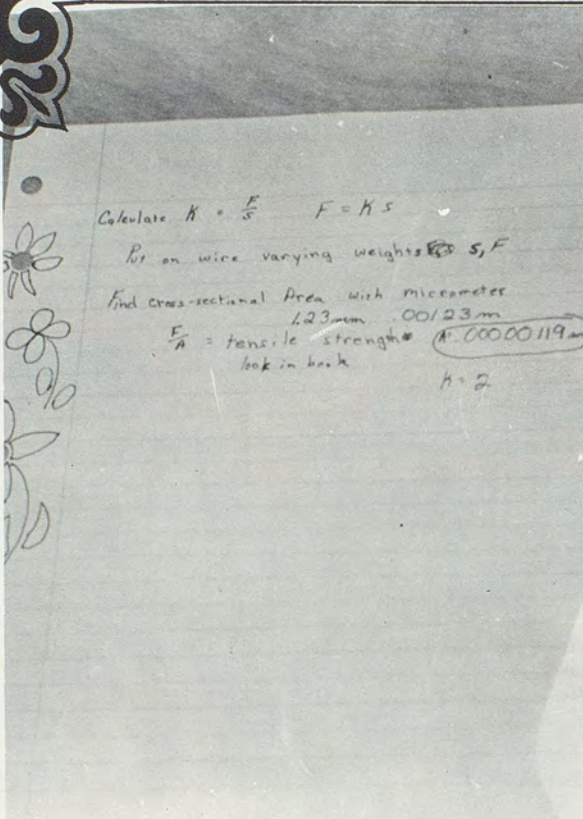 Calculate K = F/s F = K s
Put on wire varying weights s, F
Find cross-sectional Area with micrometer
1.23 mm .00123 m
F/A = tensile strength A = .00000119 m
look in book
K = 2